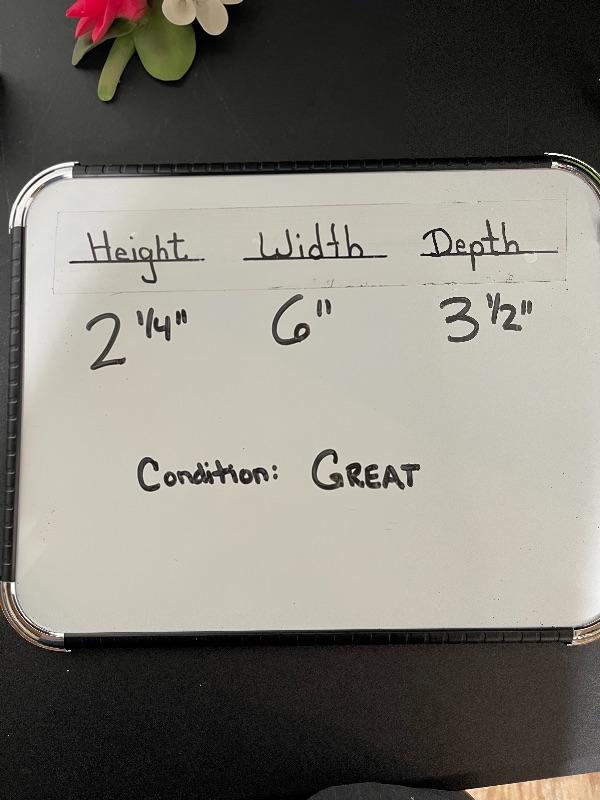 Height Width Depth
2 1/4" 6" 3 1/2"
Condition: GREAT